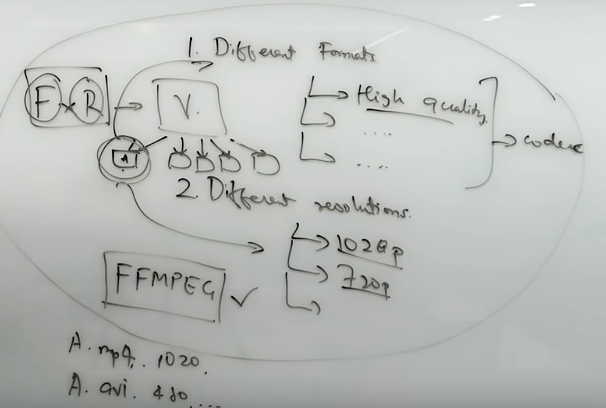 1. Different Formats.
F x R
V.
High quality
....
....
codec
A
2. Different resolutions.
1028p
720p
FFMPEG ✓
A. mp4. 1020.
A. avi. 480....